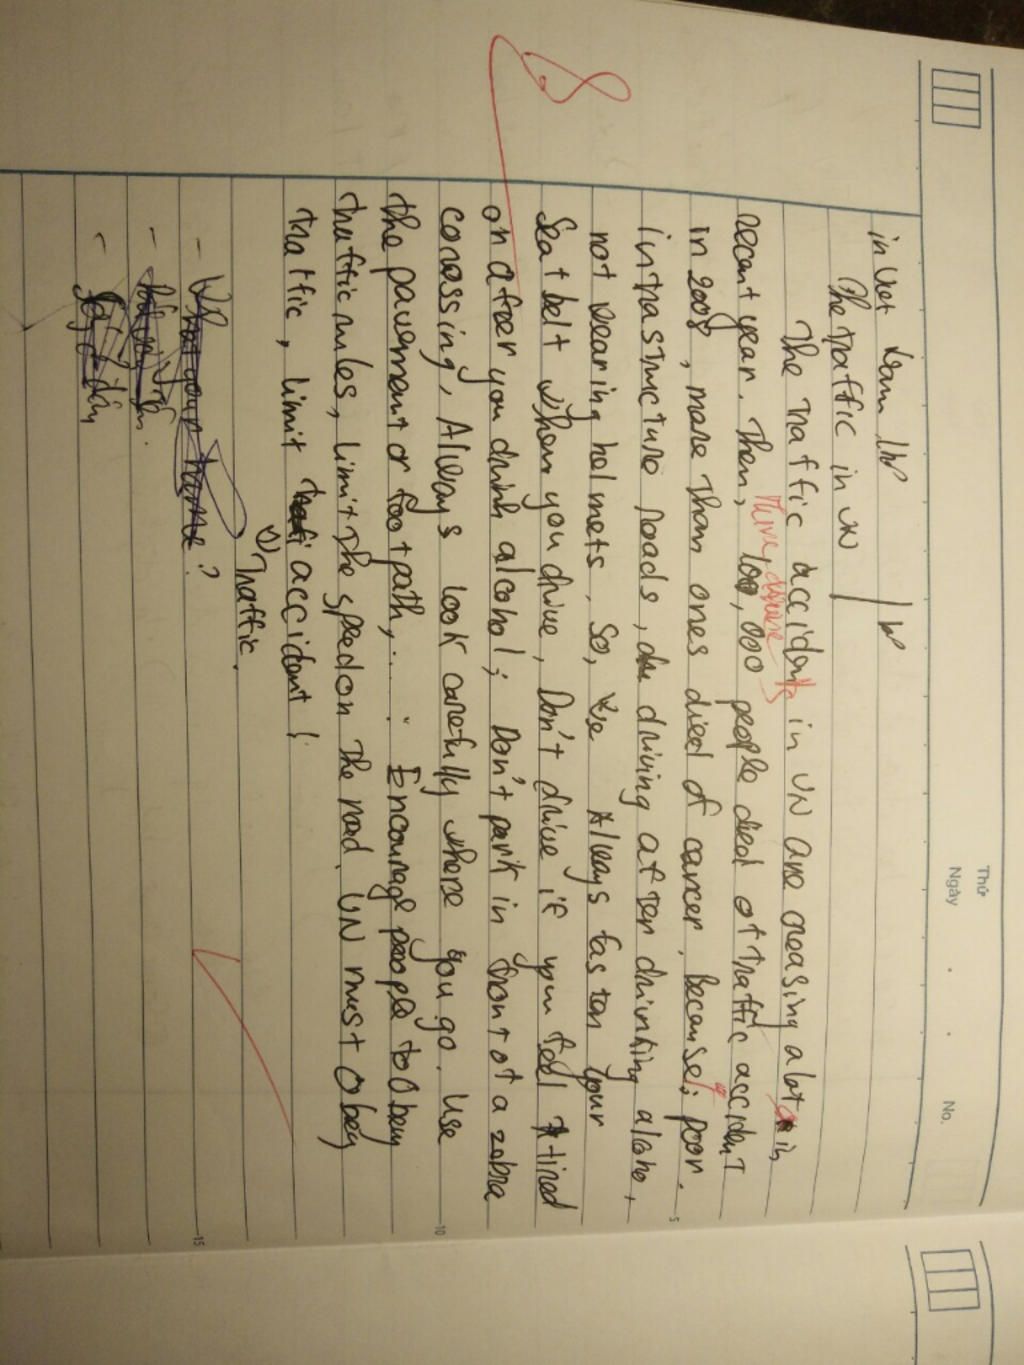 Thứ
Ngày . . No.
in Viet
The traffic in VN
The traffic accidents in VN are creasing a lot in
recant year. Then, 100,000 people died of traffic accident
in 2008, more than ones died of cancer, because; poor
intrastructure roads, driving after drinking alcoho,
not wearing helmets. So, we Always fasten your
Seat belt when you drive, Don't drive if you feel tired
on after you drink alcohol; Don't park in front of a zebra
conessing, Always look carefully where you go. Use
the pavement or foot path,... Encourage people to Obey
traffic rules, limit the speed on the road. VN must Obey
traffic, limit accident !
Traffic.
- What your name ?
-
-
5
10
15
8